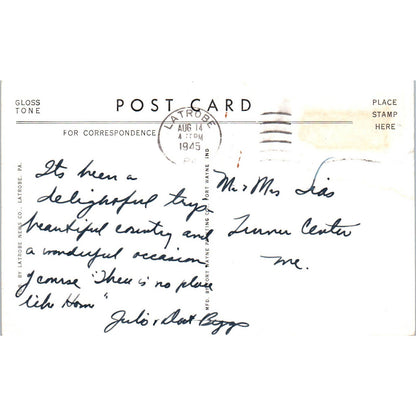 GLOSS
TONE
POST CARD
PLACE
STAMP
HERE
FOR CORRESPONDENCE
LATROBE
AUG 14
PM
1945
PA.
BY LATROBE NEWS CO., LATROBE, PA.
MFD. BY FORT WAYNE PRINTING CO., FORT WAYNE, IND
Its been a
delightful trip
beautiful country and
a wonderful occasion
of course "There is no place
like Hom"
Julia + Biggs
Mr + Mrs
Turner Center
Me.